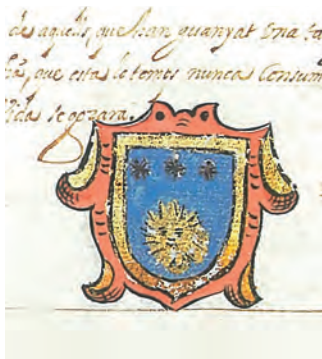 de aquells, que han guanyat Una
que esta lo temps nunca Consum
Vida se gozara.